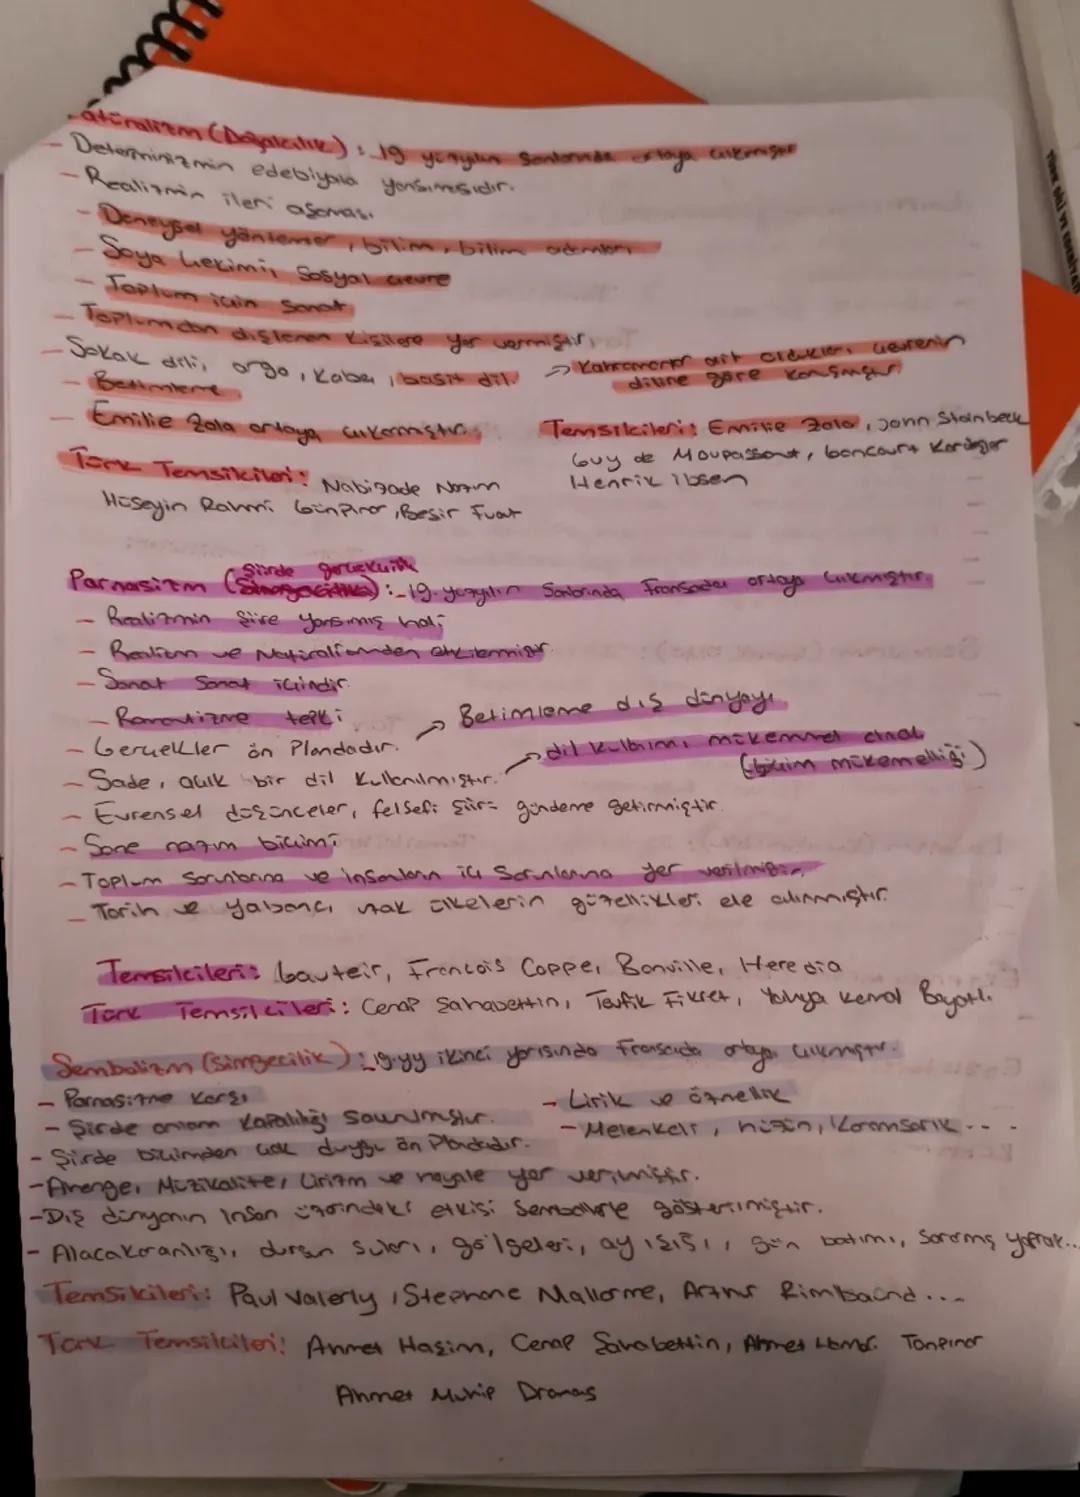 atüralizm (Doğalcılık) : 19 yüzyılın Sonlarında ortaya çıkmıştır
- Determinizmin edebiyata yansımasıdır.
- Realizmin ileri aşaması
- Deneysel yöntemler, bilim, bilim adamları
- Soya çekimi, Sosyal çevre
- Toplum için Sanat
- Toplumdan dışlanan kişilere yer vermiştir,
- Sokak dili, argo, kaba, basit dil. → Kahramanlar ait oldukları çevrenin
diline göre konuşmuştur
- Betimleme
- Emilie Zola ortaya çıkarmıştır.
Temsilcileri: Emilie Zola, John Steinbeck
Guy de Moupassant, Goncourt Kardeşler
Henrik ibsen
Türk Temsilcileri: Nabizade Nazım
Hüseyin Rahmi Günpınar, Beşir Fuat
Şiirde gerçekçilik
Parnasizm ( ) : 19. yüzyılın Sonlarında Fransada ortaya çıkmıştır.
- Realizmin şiire yansımış hali
- Realizm ve Natüralizmden etkilenmiştir.
- Sanat Sanat içindir
- Romantizme tepki
- Gerçekler ön Plandadır. → Betimleme dış dünyayı
- Sade, açık bir dil kullanılmıştır. → dil kullanımı mükemmel olmalı
(biçim mükemelliği)
- Evrensel düşünceler, felsefi şiiri gündeme getirmiştir.
- Sone nazım biçimi
- Toplum Sorunlarına ve insanların iç Sorunlarına yer verilmiştir,
- Tarih ve yabancı, uzak ülkelerin güzellikleri ele alınmıştır.
Temsilcileri: Gauteir, Francois Coppe, Banville, Heredia
Türk Temsilcileri: Cenap Şahabettin, Tevfik Fikret, Yahya Kemal Beyatlı
Sembolizm (Simgecilik) : 19.yy ikinci yarısında Fransada ortaya çıkmıştır.
- Parnasizme karşı
- Lirik ve öznellik
- Şiirde anlam kapalılığı savunmuştur.
- Melenkoli, hüzün, Karamsarlık...
- Şiirde biçimden çok duygu ön Plandadır.
- Ahenge, Müzikalite, Lirizm ve hayale yer verilmiştir.
- Dış dünyanın insan üzerindeki etkisi Sembollerle gösterilmiştir.
- Alacakaranlığı, durgun suları, gölgeleri, ay ışığı, gün batımı, Sararmış yaprak...
Temsilcileri: Paul Valerly, Stephane Mallarme, Arthur Rimbaund....
Türk Temsilcileri: Ahmet Haşim, Cenap Şahabettin, Ahmet Hamdi Tanpınar
Ahmet Muhip Dranas